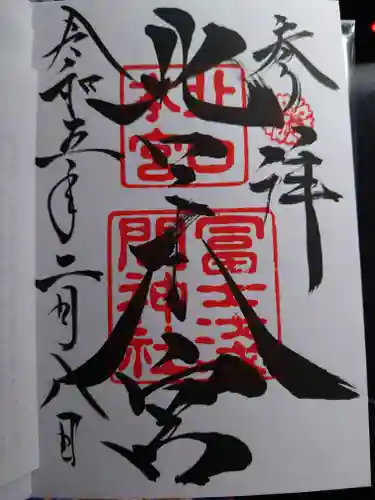 奉拝
北口本宮
北口
本宮
冨士浅
間神社
令和五年二月八日